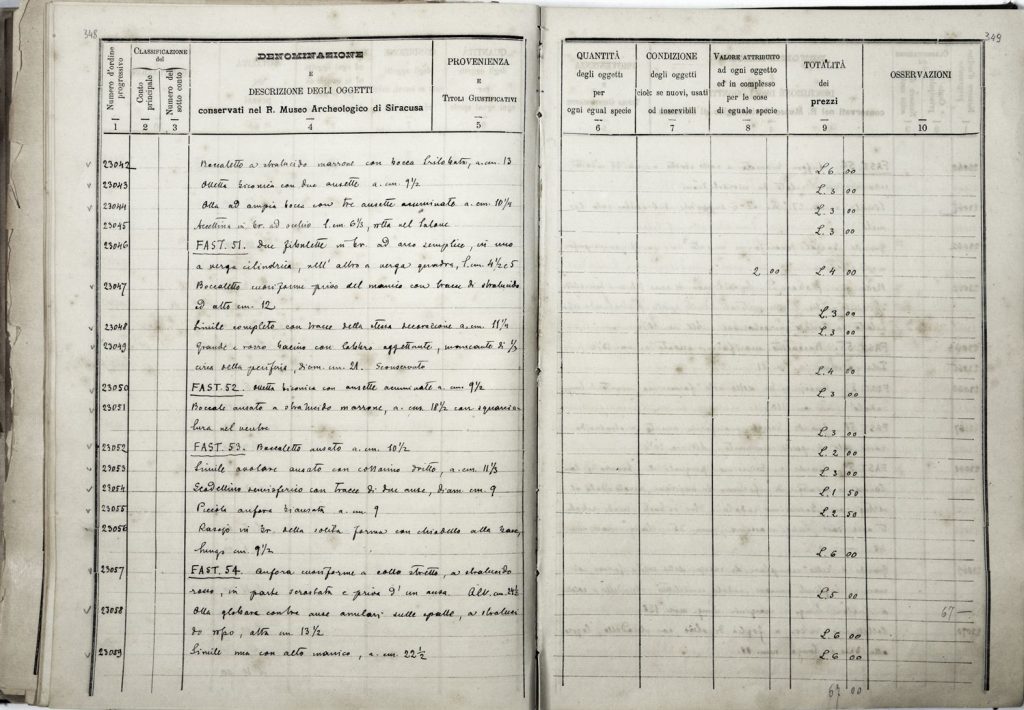 348
Numero d'ordine progressivo
CLASSIFICAZIONE del
Conto principale
Numero del sotto conto
DENOMINAZIONE
E
DESCRIZIONE DEGLI OGGETTI
conservati nel R. Museo Archeologico di Siracusa
PROVENIENZA
E
TITOLI GIUSTIFICATIVI
1 2 3 4 5
23042 Boccaletto a stralucido marrone con bocca trilobata, a. cm. 13
23043 Olletta biconica con due ansette a. cm. 9½
23044 Olla ad ampia bocca con tre ansette acuminate a. cm.
23045 Accettina in br. ad occhio l. cm. rotta nel
23046 FAST. 51. Due fibulette in br. ad arco semplice, in uno
a verga cilindrica, nell' altro a verga quadra, l. cm. 4½ e 5
23047 Boccaletto cuoriforme privo del manico con tracce di stralucido
ed alto cm. 12
23048 Simile completo con tracce della stessa decorazione a. cm.
23049 Grande e rosso bacino con labbro aggettante, mancante di ⅓
circa della periferia, diam. cm. 21. Sconservato
23050 FAST. 52. Olletta biconica con ansette acuminate a. cm. 9½
23051 Boccale ansato a stralucido marrone, a. cm. 18½ con squarcia-
tura nel ventre
23052 FAST. 53. Boccaletto ansato a. cm. 10½
23053 Simile ansato con dritto, a. cm.
23054 Scodellino semisferico con tracce di due anse, diam. cm. 9
23055 Piccola anfora biansata a. cm. 9
23056 Rasojo in br. della solita forma con chiodetto alla base,
lungo cm. 9½
23057 FAST. 54. Anfora cuoriforme a collo stretto, a stralucido
rosso, in parte scrostata e priva d' un ansa. Alt. cm.
23058 Olla globare con tre anse anulari sulle spalle, a straluci
do rosso, alta cm 13½
23059 Simile ma con alto manico, a. cm. 22½
349
QUANTITÀ
degli oggetti
per
ogni egual specie
CONDIZIONE
degli oggetti
cioè: se nuovi, usati
od inservibili
VALORE ATTRIBUITO
ad ogni oggetto
ed in complesso
per le cose
di eguale specie
TOTALITÀ
dei
prezzi
OSSERVAZIONI
6 7 8 9 10
L. 6 00
L. 3 00
L. 3 00
L. 3 00
2 00 L. 4 00
L. 3 00
L. 3 00
L. 4 00
L. 3 00
L. 3 00
L. 2 00
L. 3 00
L. 1 50
L. 2 50
L. 6 00
L. 5 00
67 —
L. 6 00
L. 6 00
67 00